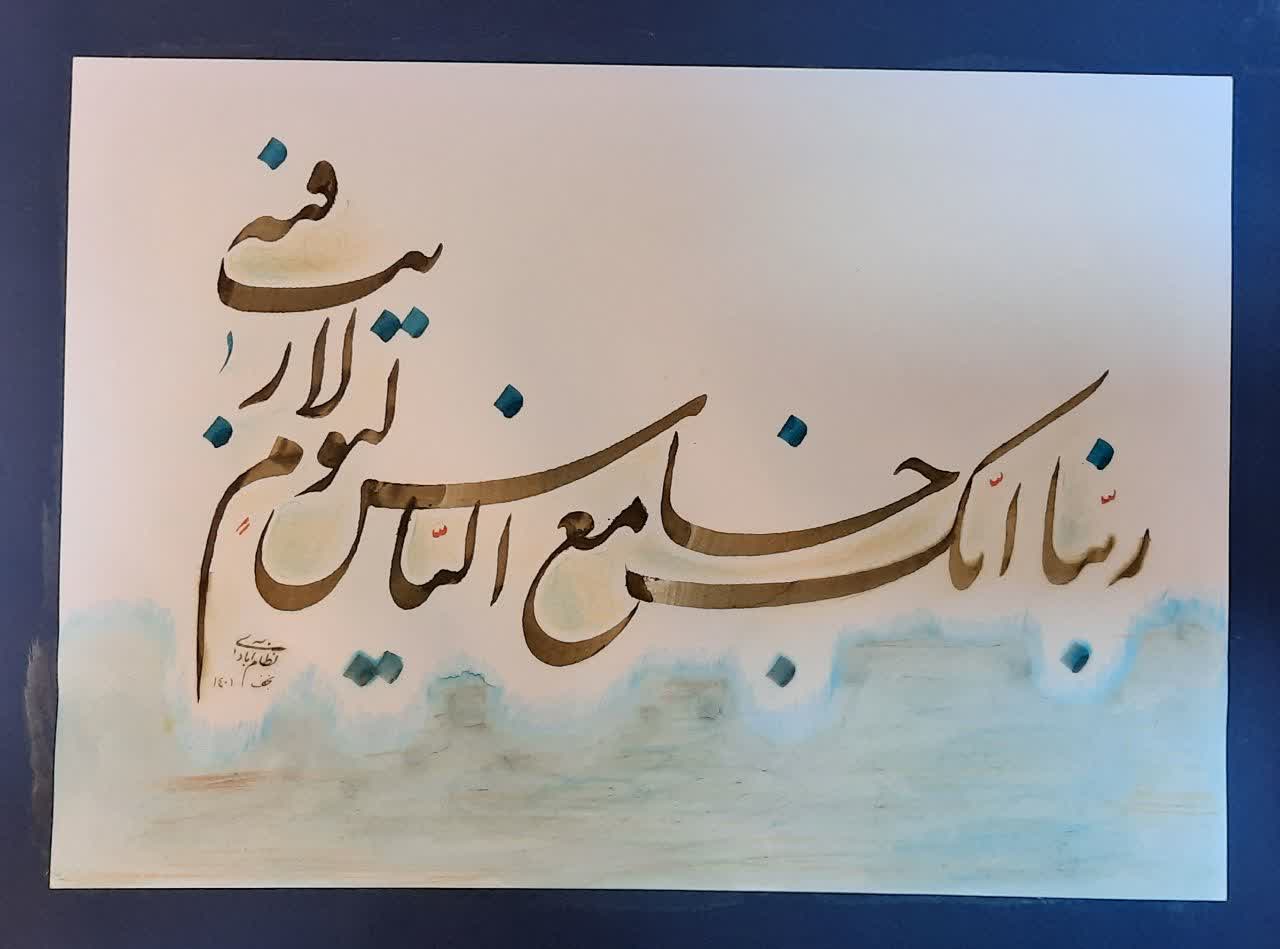 ربّنا انّک جامع النّاس لیومٍ لا ریب فیه
نظام آبادی
نجف ۱٤۰۱